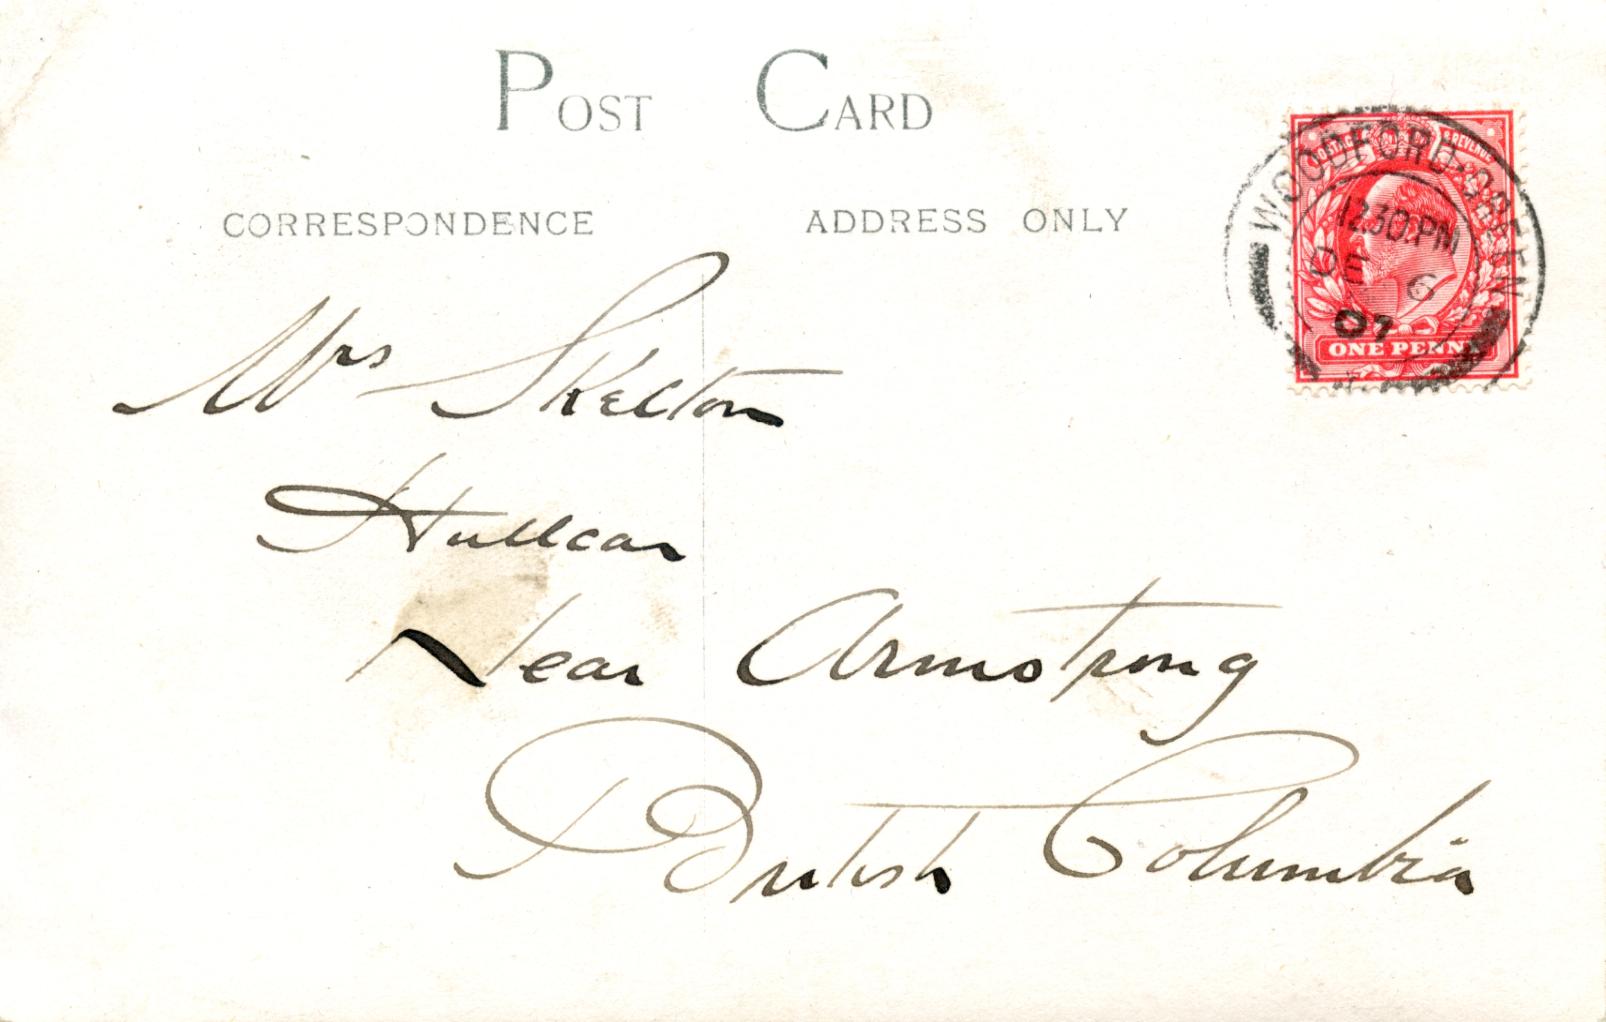 POST CARD
CORRESPONDENCE ADDRESS ONLY
POSTAGE REVENUE
WOODFORD-GREEN
12.30.PM
DE 6
07
ONE PENNY
Mrs Skelton
Hullcar
Near Armstrong
British Columbia